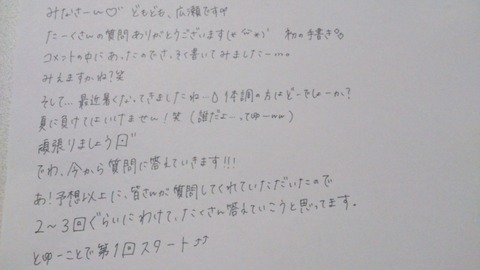 みなさーん♡ どもども、広瀬です
たーくさんの質問ありがとうございます(*^^*) 初の手書き
コメントの中にあったのでさっそく書いてみましたー…。
みえますかね?笑
そして…最近暑くなってきましたね…💧体調の方はどーでしょーか?
夏に負けてはいけません!笑 (誰だよーってゆーww)
頑張りましょう
でわ、今から質問に答えていきます!!!
あ!予想以上に、皆さんが質問してくれていただいたので
2〜3回ぐらいにわけて、たくさん答えていこうと思ってます。
とゆーことで第1回スタート⤴⤴